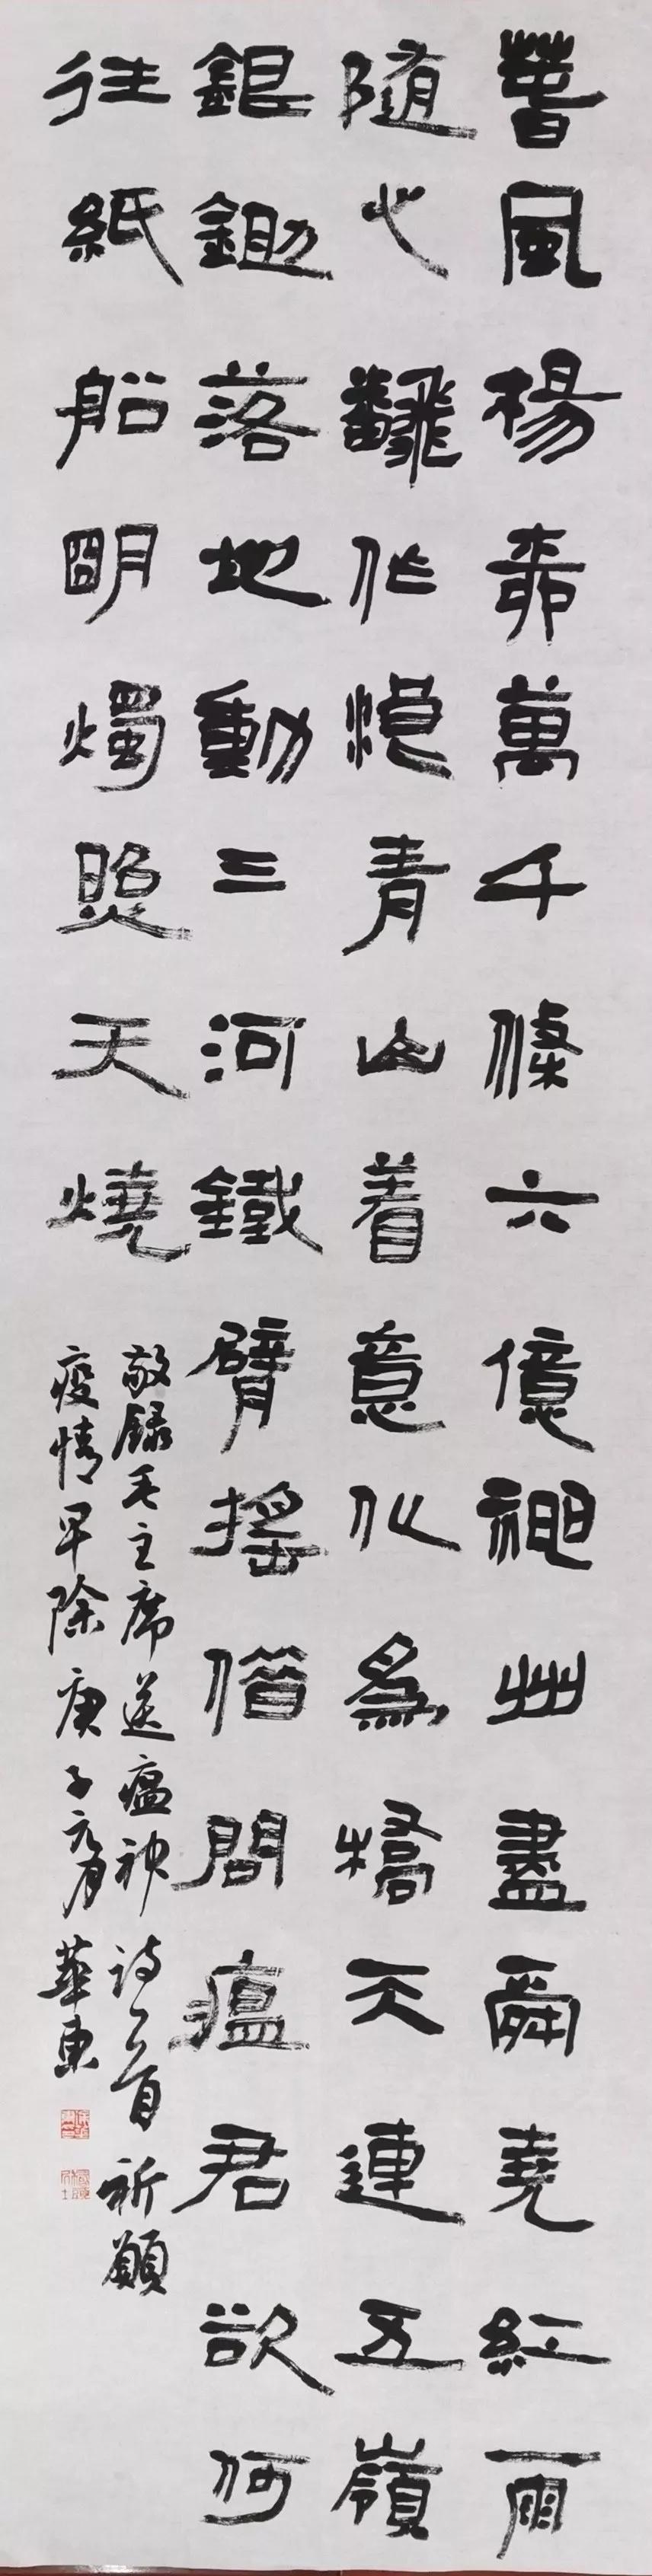 春風楊柳萬千條六億神州盡舜堯紅雨
隨心飜作浪青山着意化為橋天連五嶺
銀鋤落地動三河鐵臂搖借問瘟君欲何
往紙船明燭照天燒
敬録毛主席送瘟神詩一首祈願
疫情早除庚子元月華東